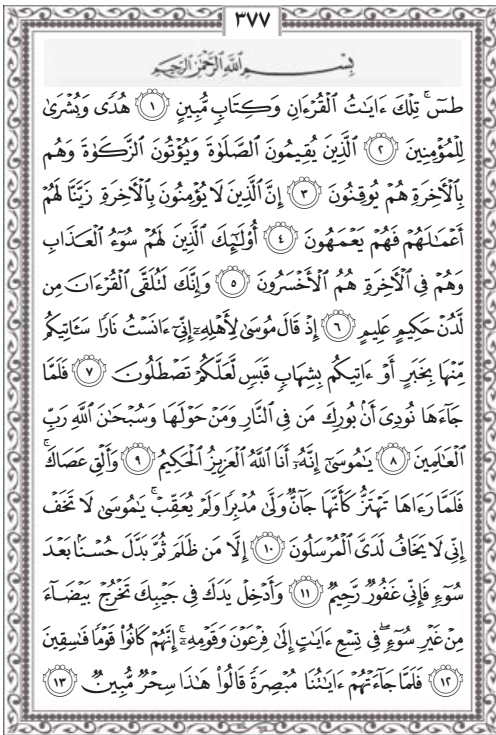 ٣٧٧
بِسْمِ اللَّهِ الرَّحْمَٰنِ الرَّحِيمِ
طسٓۚ تِلْكَ ءَايَٰتُ ٱلْقُرْءَانِ وَكِتَابٍ مُّبِينٍ ١ هُدًى وَبُشْرَىٰ
لِلْمُؤْمِنِينَ ٢ ٱلَّذِينَ يُقِيمُونَ ٱلصَّلَوٰةَ وَيُؤْتُونَ ٱلزَّكَوٰةَ وَهُم
بِٱلْءَاخِرَةِ هُمْ يُوقِنُونَ ٣ إِنَّ ٱلَّذِينَ لَا يُؤْمِنُونَ بِٱلْءَاخِرَةِ زَيَّنَّا لَهُمْ
أَعْمَٰلَهُمْ فَهُمْ يَعْمَهُونَ ٤ أُو۟لَٰٓئِكَ ٱلَّذِينَ لَهُمْ سُوٓءُ ٱلْعَذَابِ
وَهُمْ فِى ٱلْءَاخِرَةِ هُمُ ٱلْأَخْسَرُونَ ٥ وَإِنَّكَ لَتُلَقَّى ٱلْقُرْءَانَ مِن
لَّدُنْ حَكِيمٍ عَلِيمٍ ٦ إِذْ قَالَ مُوسَىٰ لِأَهْلِهِۦٓ إِنِّىٓ ءَانَسْتُ نَارًا سَـَٔاتِيكُم
مِّنْهَا بِخَبَرٍ أَوْ ءَاتِيكُم بِشِهَابٍ قَبَسٍ لَّعَلَّكُمْ تَصْطَلُونَ ٧ فَلَمَّا
جَآءَهَا نُودِىَ أَنۢ بُورِكَ مَن فِى ٱلنَّارِ وَمَنْ حَوْلَهَا وَسُبْحَٰنَ ٱللَّهِ رَبِّ
ٱلْعَٰلَمِينَ ٨ يَٰمُوسَىٰٓ إِنَّهُۥٓ أَنَا ٱللَّهُ ٱلْعَزِيزُ ٱلْحَكِيمُ ٩ وَأَلْقِ عَصَاكَۚ
فَلَمَّا رَءَاهَا تَهْتَزُّ كَأَنَّهَا جَآنٌّ وَلَّىٰ مُدْبِرًا وَلَمْ يُعَقِّبْۚ يَٰمُوسَىٰ لَا تَخَفْ
إِنِّى لَا يَخَافُ لَدَىَّ ٱلْمُرْسَلُونَ ١٠ إِلَّا مَن ظَلَمَ ثُمَّ بَدَّلَ حُسْنًۢا بَعْدَ
سُوٓءٍ فَإِنِّى غَفُورٌ رَّحِيمٌ ١١ وَأَدْخِلْ يَدَكَ فِى جَيْبِكَ تَخْرُجْ بَيْضَآءَ
مِنْ غَيْرِ سُوٓءٍۖ فِى تِسْعِ ءَايَٰتٍ إِلَىٰ فِرْعَوْنَ وَقَوْمِهِۦٓۚ إِنَّهُمْ كَانُوا۟ قَوْمًا فَٰسِقِينَ
١٢ فَلَمَّا جَآءَتْهُمْ ءَايَٰتُنَا مُبْصِرَةً قَالُوا۟ هَٰذَا سِحْرٌ مُّبِينٌ ١٣